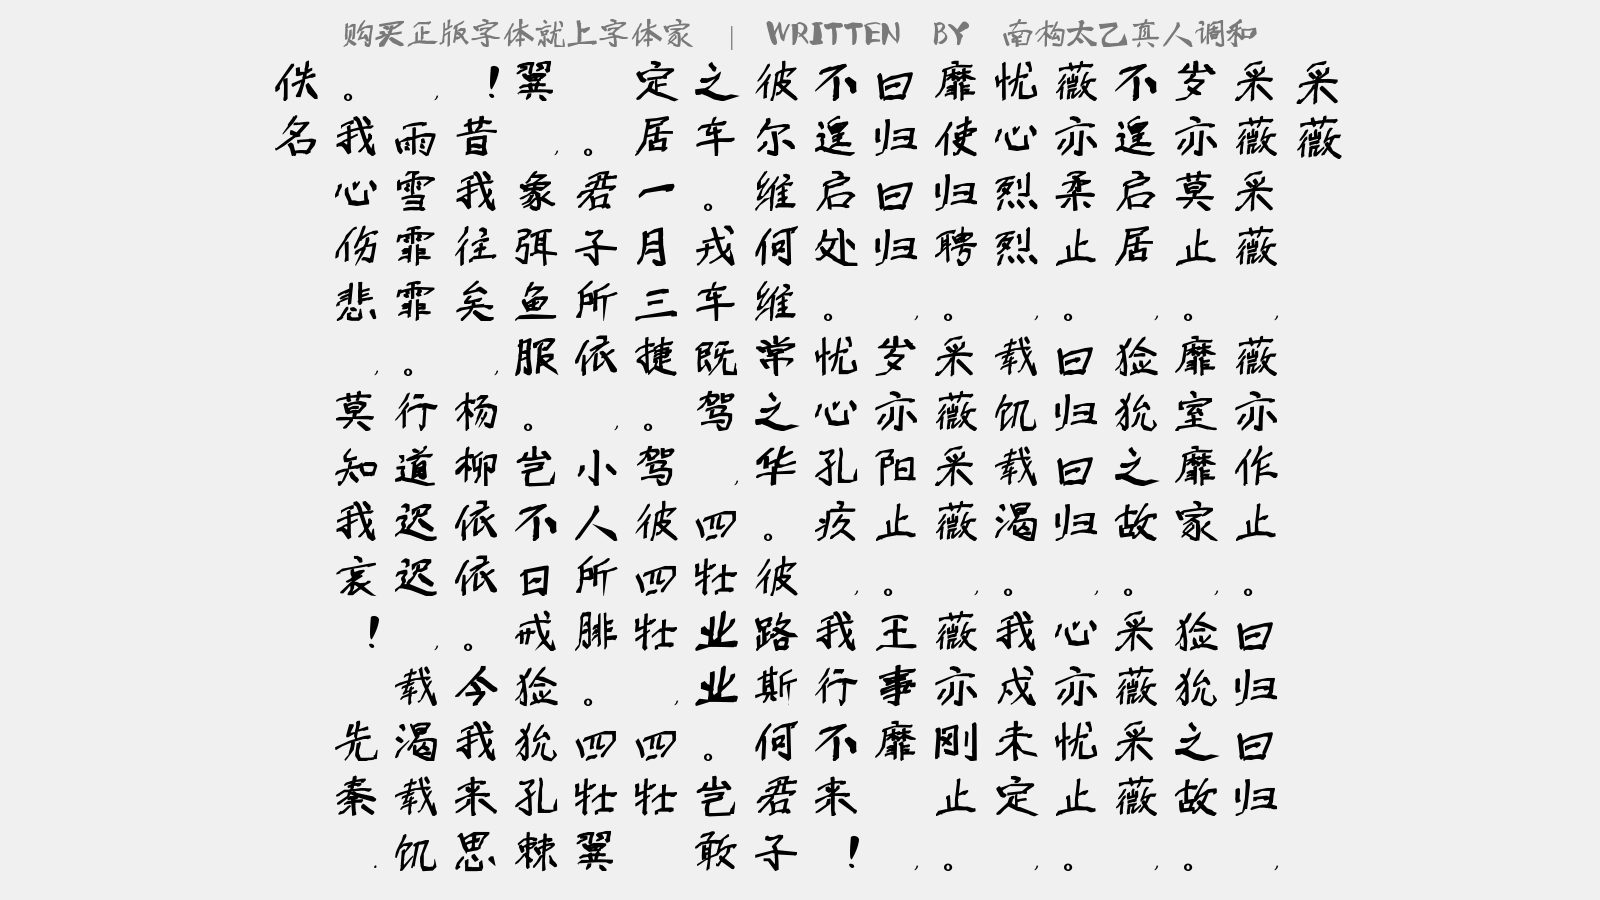 购买正版字体就上字体家 | WRITTEN BY 南构太乙真人调和
采薇
采薇采薇,薇亦作止。曰归曰归,
岁亦莫止。靡室靡家,猃狁之故。
不遑启居,猃狁之故。采薇采薇,
薇亦柔止。曰归曰归,心亦忧止。
忧心烈烈,载饥载渴。我戍未定,
靡使归聘。采薇采薇,薇亦刚止。
曰归曰归,岁亦阳止。王事靡 ,
不遑启处。忧心孔疚,我行不来!
彼尔维何维常之华。彼路斯何君子
之车。戎车既驾,四牡业业。岂敢
定居一月三捷。驾彼四牡,四牡
。君子所依,小人所腓。四牡翼
翼,象弭鱼服。岂不日戒,猃狁孔棘
!昔我往矣,杨柳依依。今我来思
,雨雪霏霏。行道迟迟,载渴载饥
。我心伤悲,莫知我哀! 先秦.
佚名